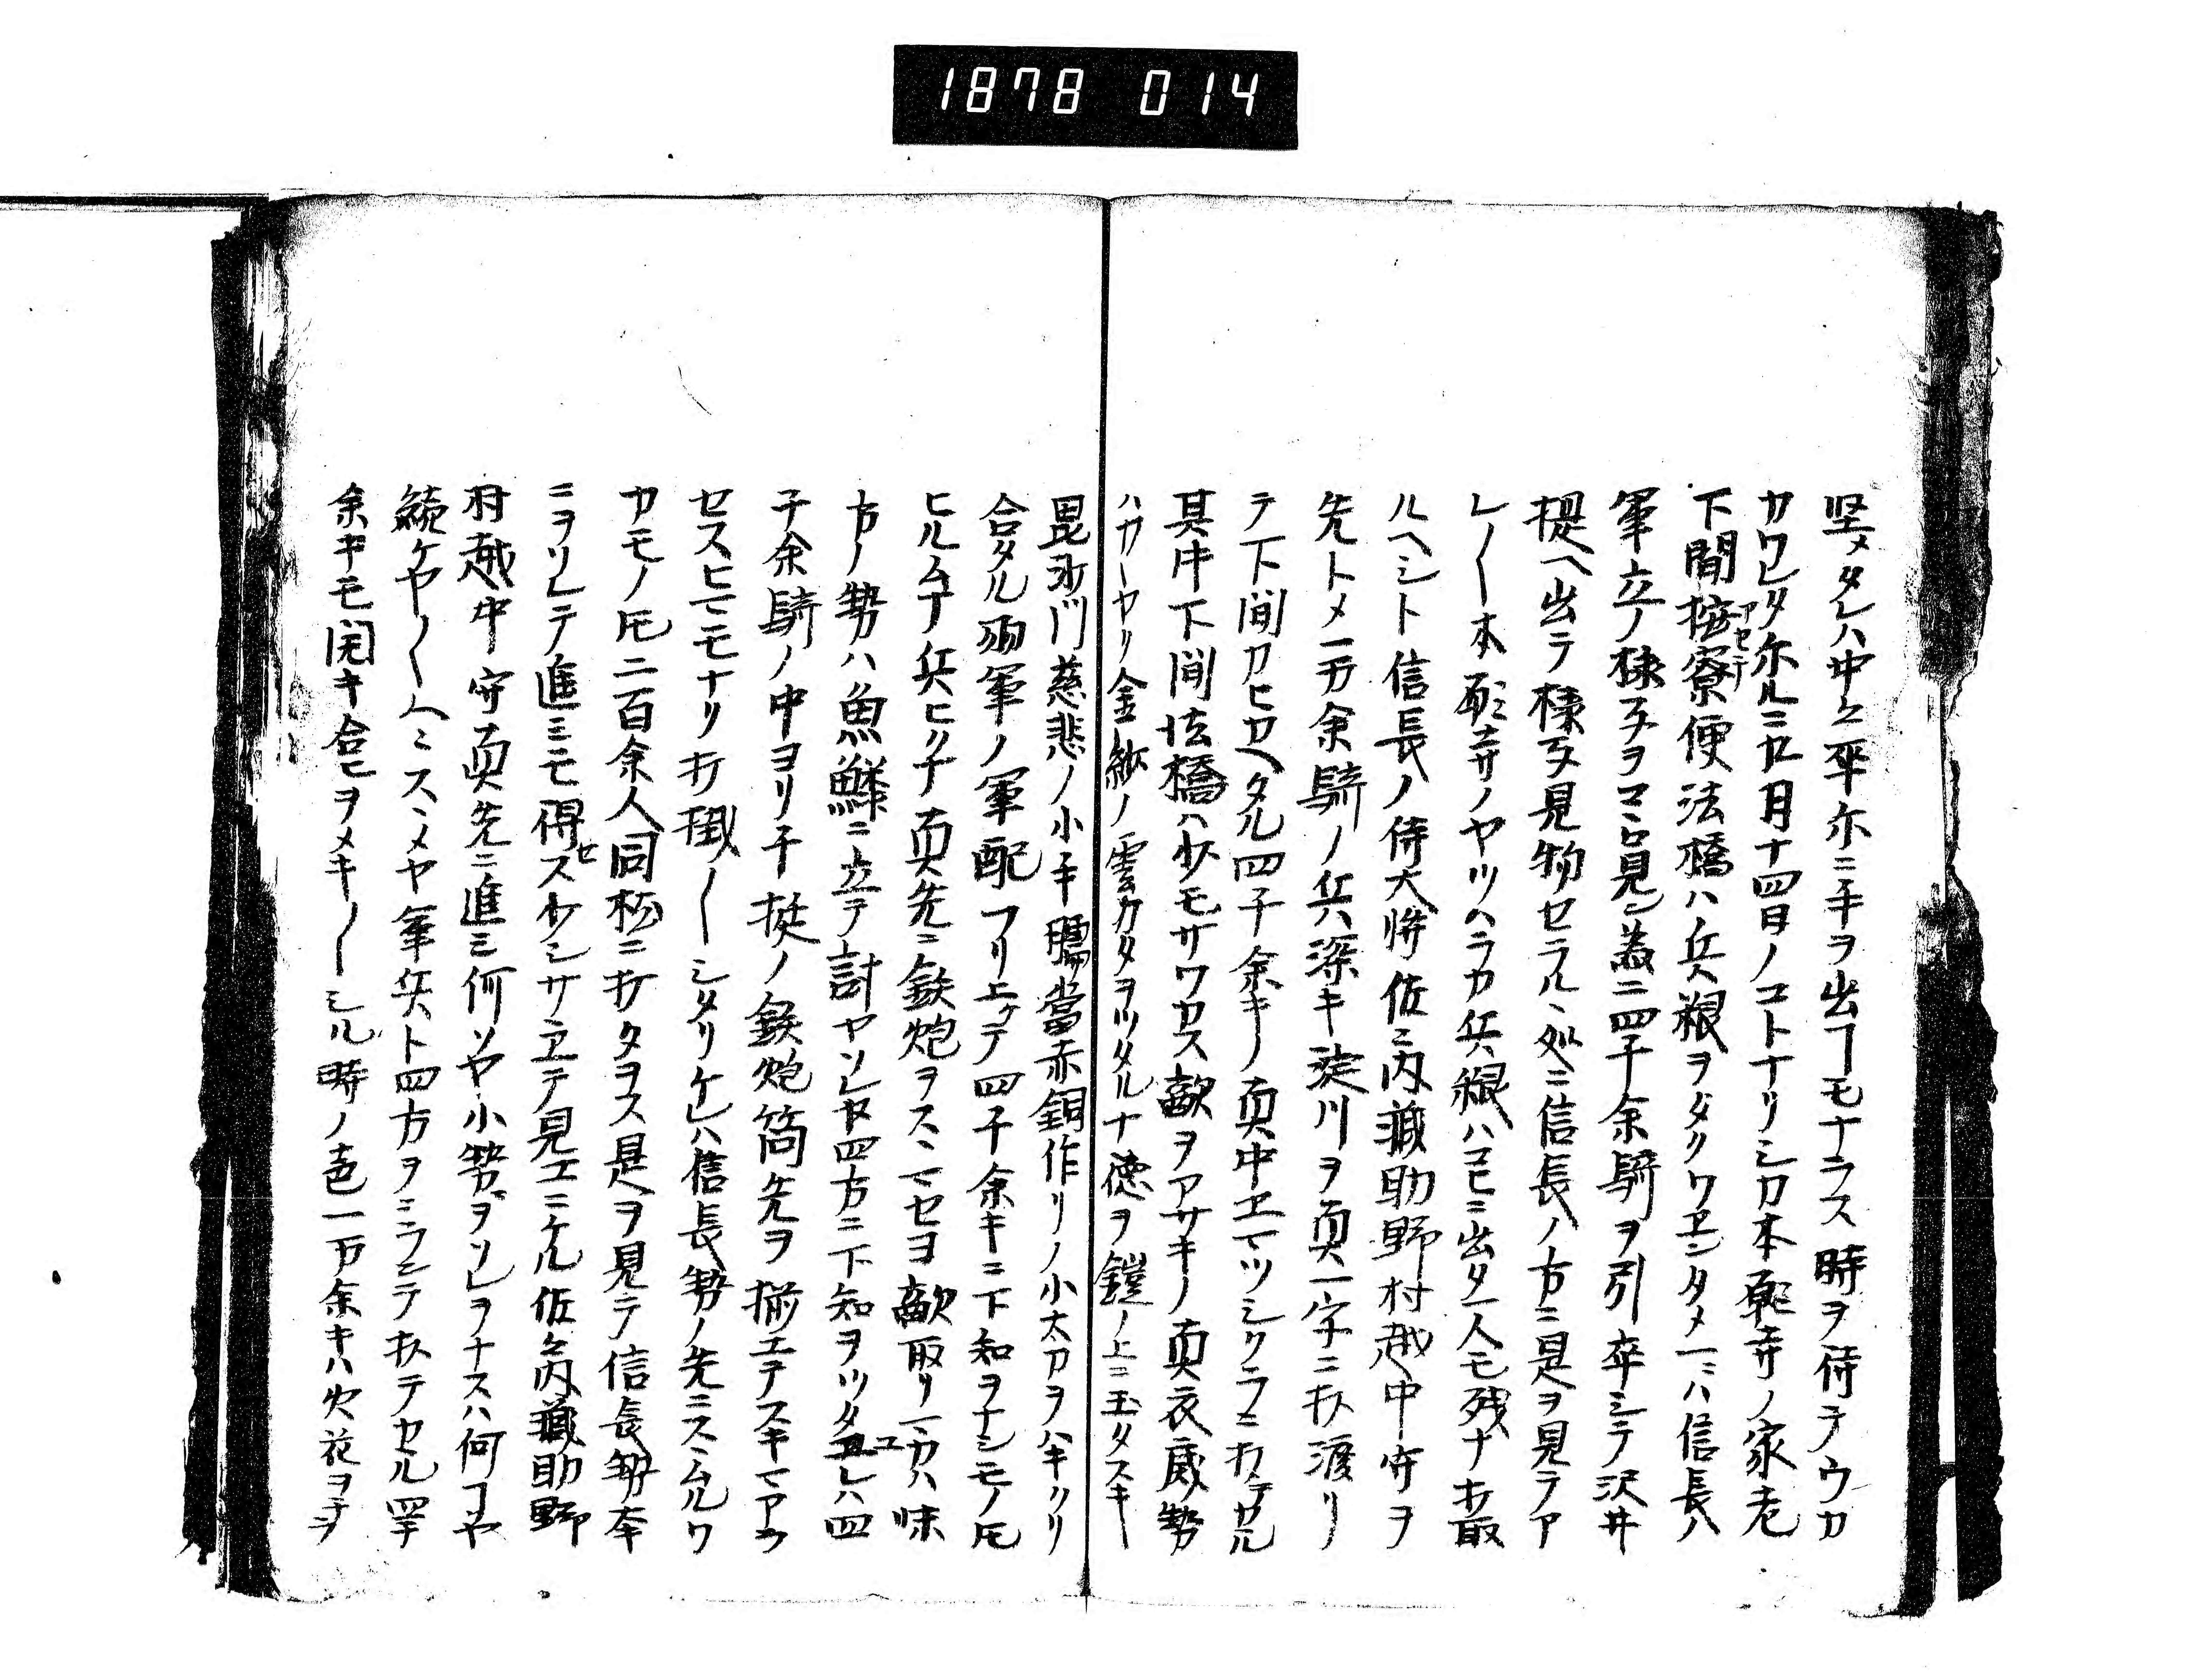 1878 014
堅メタレハ中々卒尓ニ手ヲ出フモナラス時ヲ待テウカ
カワレタ尓ルニ九月十四日ノコトナリシカ本願寺ノ家老
下間按察便法橋ハ兵粮ヲタクワエンタメ一ニハ信長ノ
アセチ
軍立ノ様子ヲマロ見ン為ニ四千余騎ヲ引卒シテ沢井
堤ヘ出テ様子見物セラルヽ処ニ信長ノ方ニ是ヲ見テア
レ〳〵本願寺ノヤツハラカ兵粮ハコヒニ出タ一人モ残ナ打取
ルヘシト信長ノ侍大将佐々内蔵助野村越中守ヲ
先トメ一万余騎ノ兵共深キ淀川ヲ真一字ニ打渡リ
テ下間カヒカヘタル四千余キノ真中エマツシクラニ打テカル
其中下間法橋ハ少モサワカス敵ヲアサキノ直衣威勢
ハカヽヤリ金紗ノ雲カタヲツタル十徳ヲ鎧ノ上ニ玉タスキ
毘沙門慈悲ノ小手臑當赤銅作リノ小太刀ヲハキクリ
合タル両軍ノ軍配フリ上ケテ四千余キニ下知ヲナシモノ𪜈
ヒルム丁兵ヒクナ真先ニ鉄炮ヲスヽマセヨ敵取リ一カハ味
方ノ勢ハ魚鱗ニ立テ討ヤソレヤ四方ニ下知ヲツタユレハ四
千余騎ノ中ヨリ千挺ノ鉄炮筒先ヲ揃エテスキマアラ
セスヒマモナリ打掛〳〵シタリケレハ信長勢ノ先ニスヽムルワ
カモノ𪜈二百余人同枕ニ打タヲス是ヲ見テ信長勢卒
ニヲソレテ進ミモ得セス少シサヱテ見エニケル佐々内蔵助野
村越中守真先ニ進ミ何ソヤ小勢ヲソレヲナスハ何フヤ
続ケヤ〳〵スヽメヤ軍兵ト四方ヲニランテ打テカル四千
余キモ開キ合セヲメキ〳〵シル時ノ声一万余キハ火花ヲチ